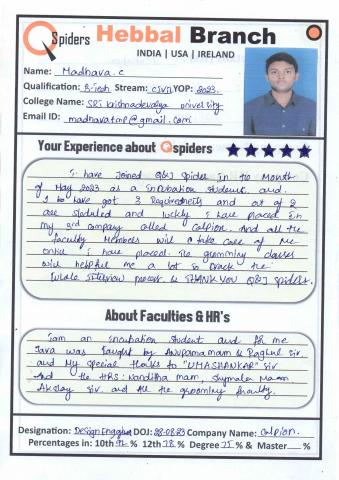 QSpiders Hebbal Branch
INDIA | USA | IRELAND
Name: Madhava.c
Qualification: B.Tech Stream: YOP: 2023.
College Name: SRi krishnadevaraya university
Email ID: @gmail.com
Your Experience about Qspiders
I have Joined QBJ spider in the month
of May 2023 as a incubation student. and
I have got 3 Requirements and out of 2
are and lucky I have placed in
my 3rd company called Calpion. And all the
faculty Members will take care of me
I have placed. The grooming classes
will helpful me a lot to crack the
whole interview process. & THANK YOU QBJ spiders.
About Faculties & HR's
I am an incubation student and for me
Java was taught by Anupama mam & Raghul sir.
and My special thanks to "UMASHANKAR" sir
And the HRS: Nanditha mam, mam
Akshay sir. and all the grooming faculty.
Designation: Design DOJ: 28-08-23 Company Name: Calpion.
Percentages in: 10th % 12th 78 % Degree 75 % & Master %